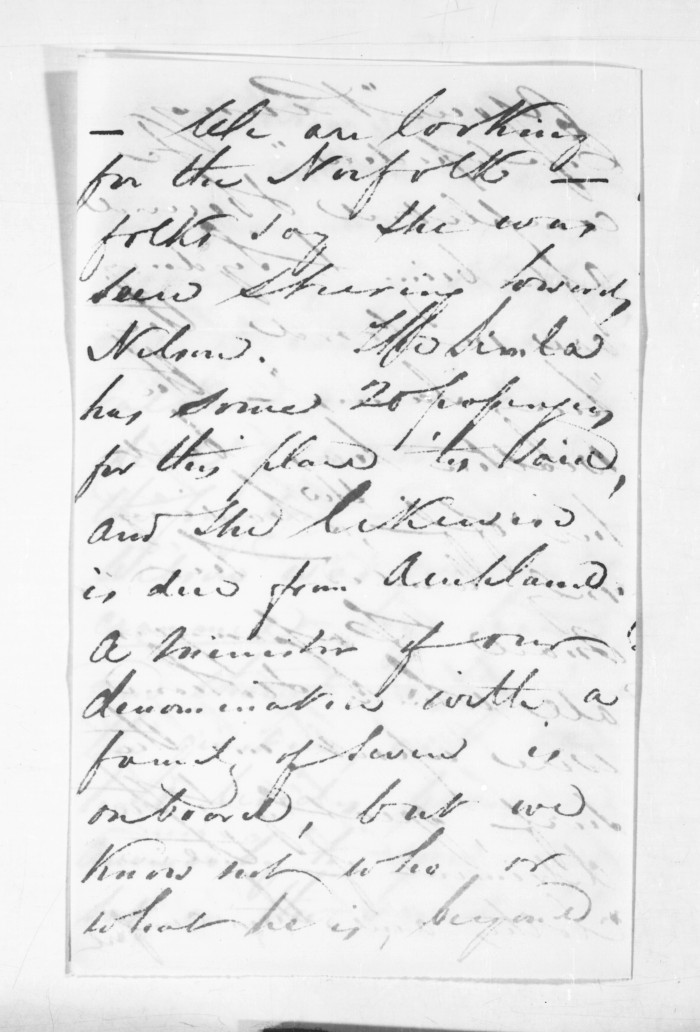 — We are looking
for the Norfolk —
folks say she was
seen steering towards
Nelson. The Simla
has some 20 passengers
for this place 'tis said,
and she likewise
is due from Auckland.
A minister of our
denomination with a
family of seven is
onboard, but we
know not who or
what he is, beyond